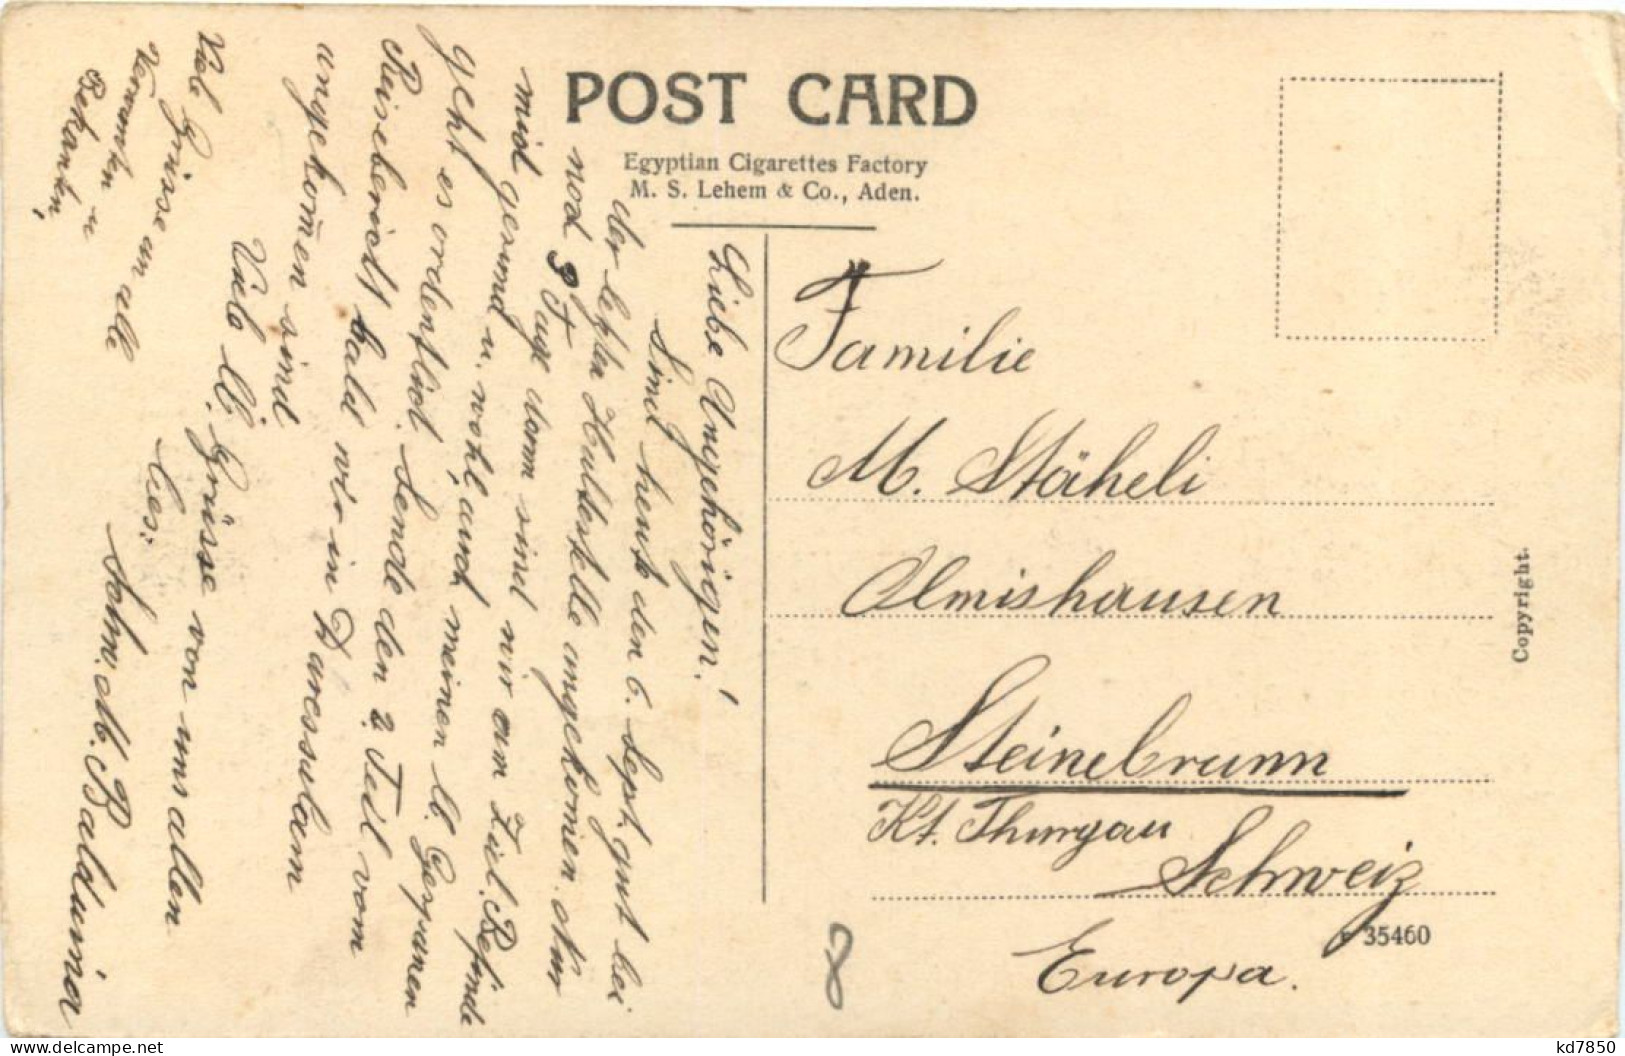 POST CARD
Egyptian Cigarettes Factory
M. S. Lehem & Co., Aden.
Liebe Angehörigen!
Sind heute den 6. Sept. gut bei
der letzten Haltestelle angekom̄en. Nur
noch 3 Tage dann sind wir am Ziel. Befinde
mich gesund u. wohl, auch meinen lb. Gespanen
geht es ordentlich. Sende den 2. Teil vom
Reisebericht bald wir in Daressalam
angekom̄en sind
Viele lb. Grüsse von uns allen
bes:
Schw. M. Balduina
Viele Grüsse an alle
Verwandten u
Bekannten,
Familie
M. Stäheli
Olmishausen
Steinebrunn
Kt. Thurgau
Schweiz
Europa.
35460
Copyright.
8
kd7850